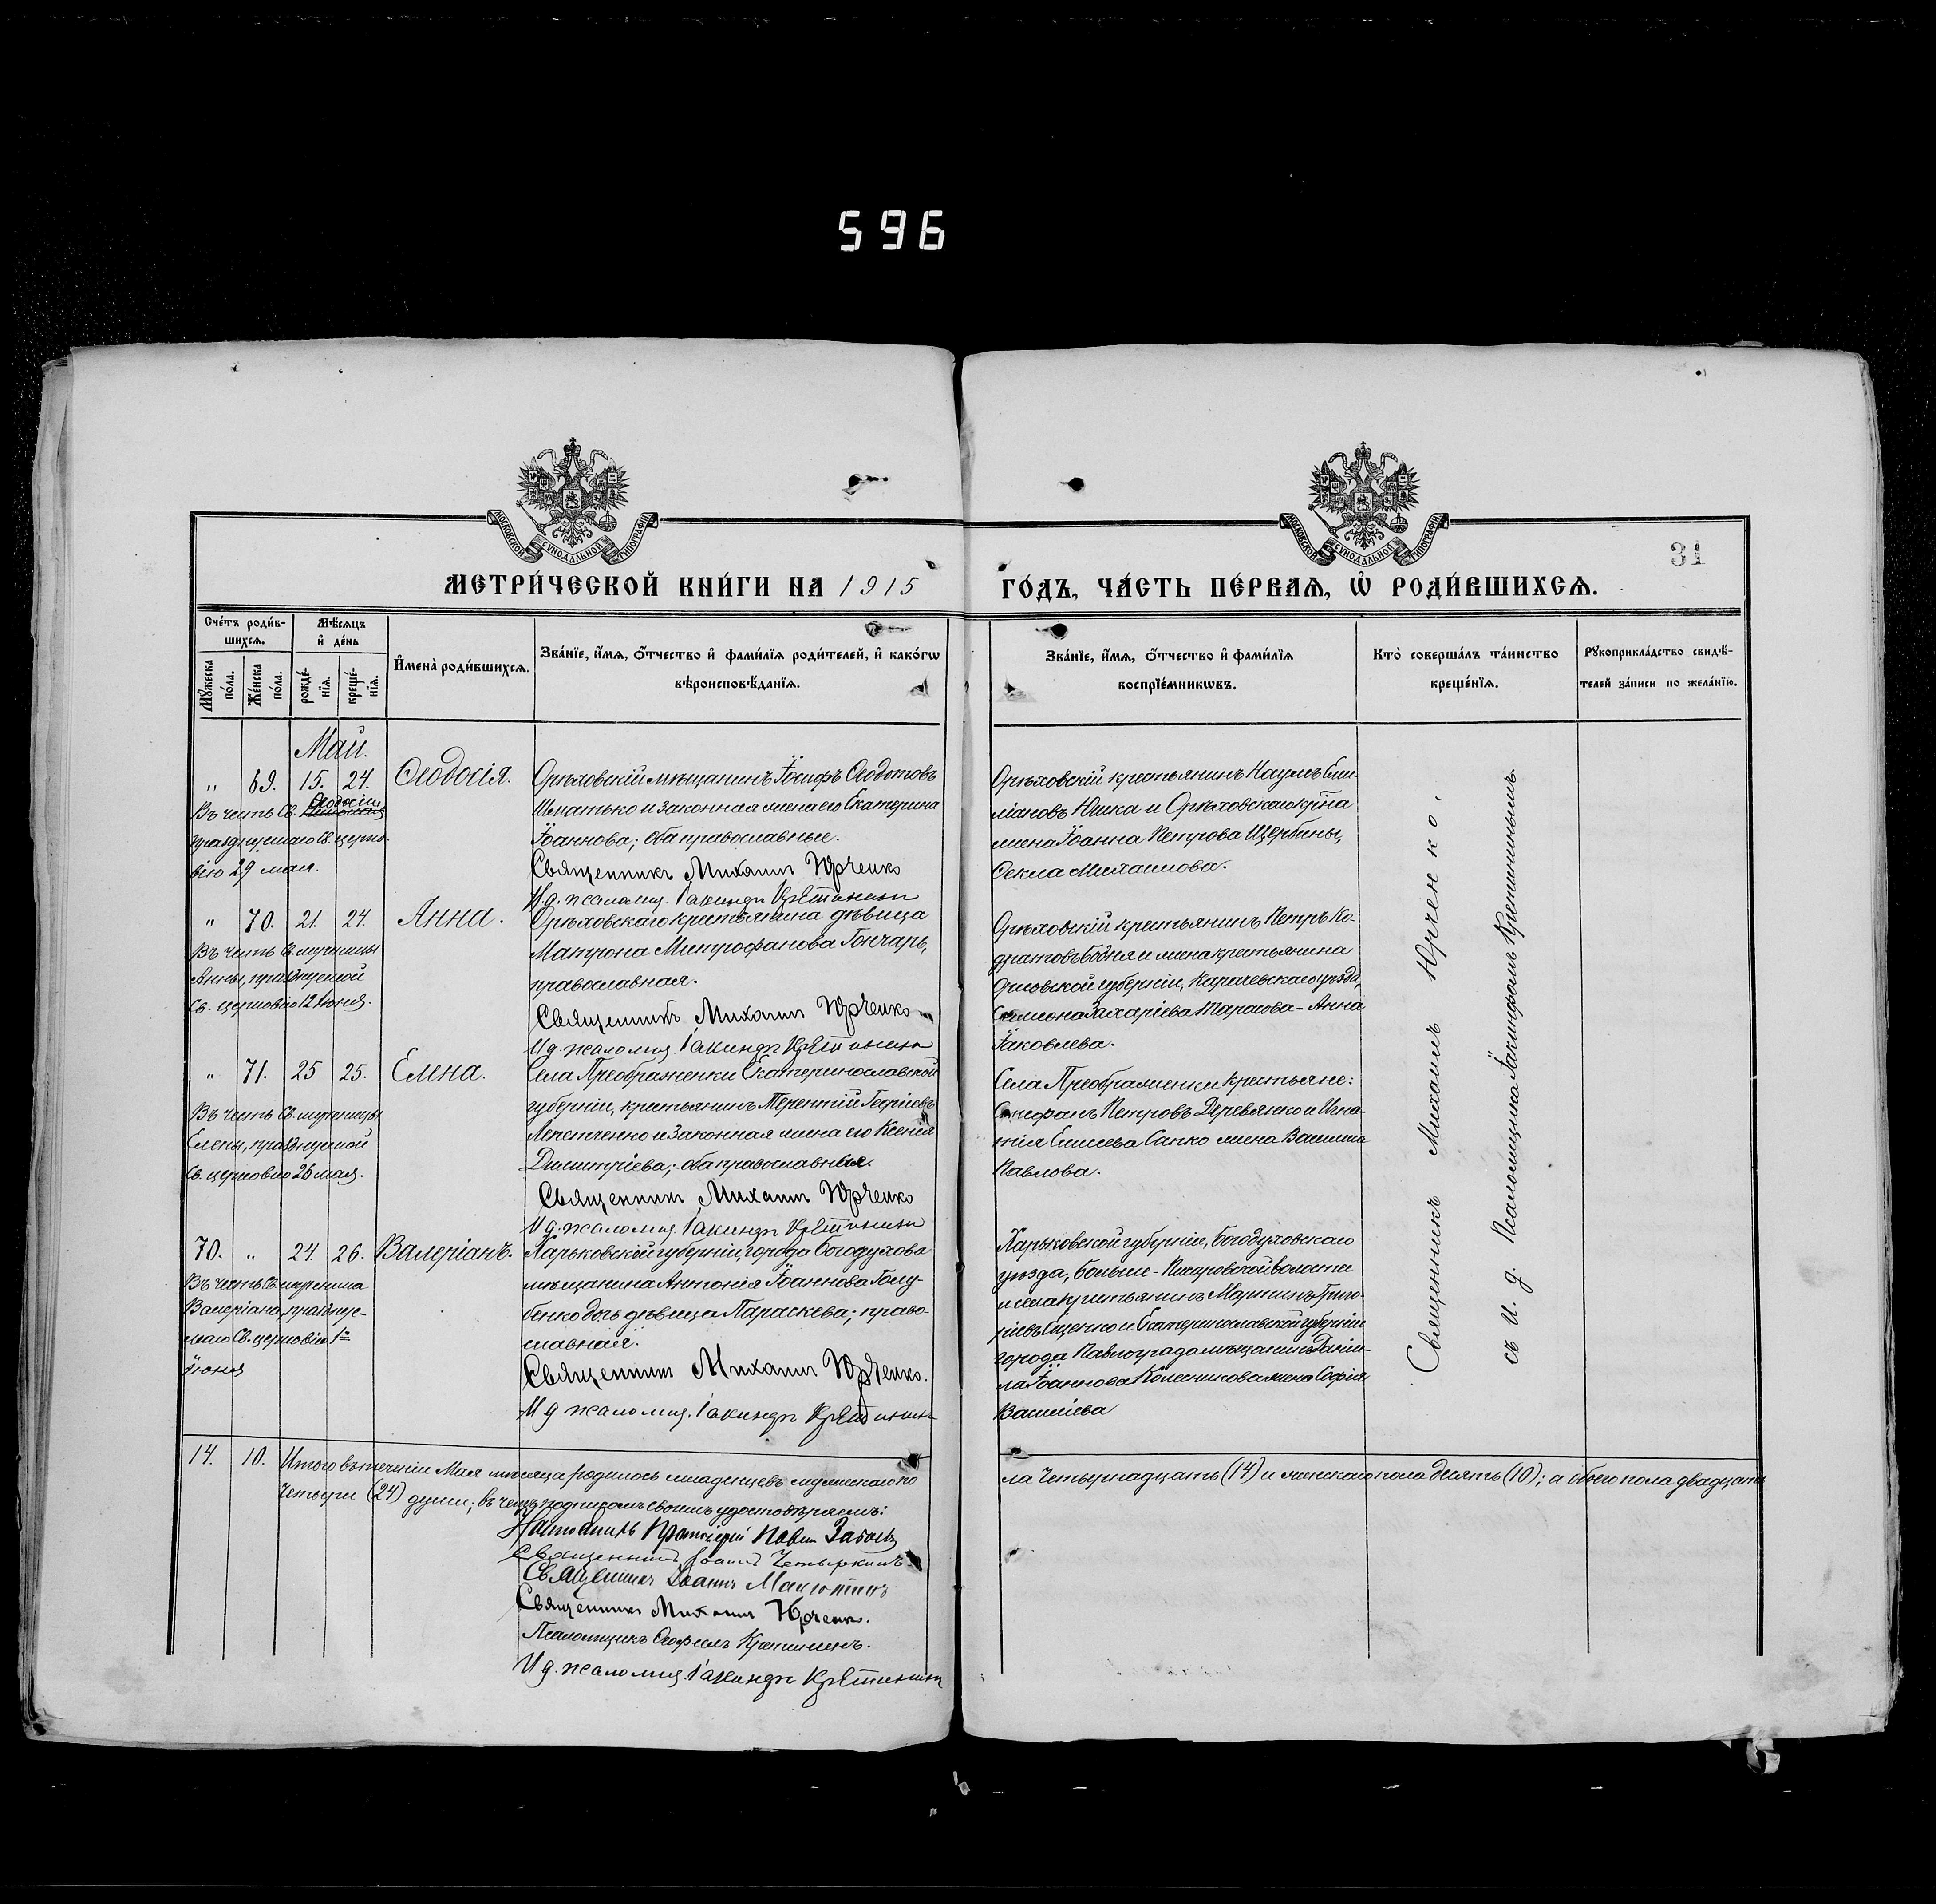 596
МОСКОВСКОЙ СѴНОДАЛЬНОЙ ТИПОГРАФІИ
МОСКОВСКОЙ СѴНОДАЛЬНОЙ ТИПОГРАФІИ
31
МЕТРИ́ЧЕСКОЙ КНИ́ГИ НА 1915
ГО́ДЪ, ЧА́СТЬ ПЕ́РВАѦ, Ѡ҆ РОДИ́ВШИХСѦ.
Сче́тъ роди́в-
шихсѧ.
Мꙋ́жеска
по́ла.
Же́нска
по́ла.
Мѣ́сѧцъ
и҆ де́нь
рожде́-
нїѧ.
креще́-
нїѧ.
И҆мена̀ роди́вшихсѧ.
Зва́нїе, и҆́мѧ, ѻ҆́тчество и҆ фами́лїѧ роди́телей, и҆ како́гѡ
вѣроисповѣ́данїѧ.
Зва́нїе, и҆́мѧ, ѻ҆́тчество и҆ фами́лїѧ
воспрїе́мникѡвъ.
Кто̀ соверша́лъ та́инство
креще́нїѧ.
Рꙋкоприкла́дство свидѣ́-
телей за́писи по жела́нїю.
Май.
„ 69. 15. 24. Ѳеодосія.
Въ честь Св. Ѳеодосіи
празднуемаго Св. церко-
вію 29 мая.
Орѣховскій мѣщанинъ Іосифъ Ѳеодотовъ
и законная жена его Екатерина
Іоаннова; оба православные.
Священникъ Михаилъ Юрченко
И.д. псаломщ. Іакинфъ Крѣпинин
Орѣховскій крестьянинъ Наумъ Ели-
мановъ Юшка и Орѣховскаго кр‑на
жена Іоанна Петрова Щербины,
Ѳекла Михаилова.
„ 70. 21. 24. Анна.
Въ честь Св. мученицы
Анны, празднуемой
Св. церковію 12 Іюня.
Орѣховскаго крестьянина дѣвица
Матрона Митрофанова Гончаръ,
православная.
Священникъ Михаилъ Юрченко
И.д. псаломщ. Іакинфъ Крѣпинин
Орѣховскій крестьянинъ Петръ Ко-
дратовъ Бодня и жена крестьянина
Орловской губерніи, Карачевскаго уѣзда,
Симеона Захаріева Тарасова - Анна
Іаковлева.
„ 71. 25 25. Елена.
Въ честь Св. мученицы
Елены, празднуемой
Св. церковію 26 мая.
Села Преображенки Екатеринославской
губерніи, крестьянинъ Терентій Георгіевъ
и законная жена его Ксенія
Димитріева; оба православные.
Священникъ Михаилъ Юрченко
И.д. псаломщ. Іакинфъ Крѣпинин
Села Преображенки крестьяне:
Стефанъ Петровъ Деревянко и Игна-
тія Елисеева Сапко жена Василиса
Павлова.
70. „ 24. 26. Валеріанъ.
Въ честь Св. мученика
Валеріана, праздну-
емаго Св. церковію 1го
Іюня
Харьковской губерніи, города Богодухова
мѣщанина Антонія Іоаннова Голу-
бенко дочь дѣвица Параскева; право-
славная.
Священникъ Михаилъ Юрченко.
И д псаломщ. Іакинфъ Крѣпинин
Харьковской губерніи, Богодуховскаго
уѣзда, Больше-Писаревской волости
и села крестьянинъ Мартинъ Григо-
ріевъ и Екатеринославской губерніи
города Павлограда мѣщанина Даніи-
ла Іоаннова Колесникова жена Софія
Василіева
Священникъ Михаилъ Юрченко,
съ и. д. Псаломщика Іакинфомъ Крѣпининымъ.
14. 10. Итого въ теченіи Мая мѣсяца родилось младенцевъ мужескаго по
ла четырнадцать (14) и женскаго пола десять (10); а обоего пола двадцать
четыре (24) души; въ чемъ подписомъ своимъ удостовѣряемъ:
Настоятель Протоіерей Павелъ
Священникъ Іоаннъ Четыркинъ
Священникъ Іоаннъ
Священникъ Михаилъ Юрченко.
Псаломщикъ Ѳеофилъ
И д. псаломщ. Іакинфъ Крѣпинин